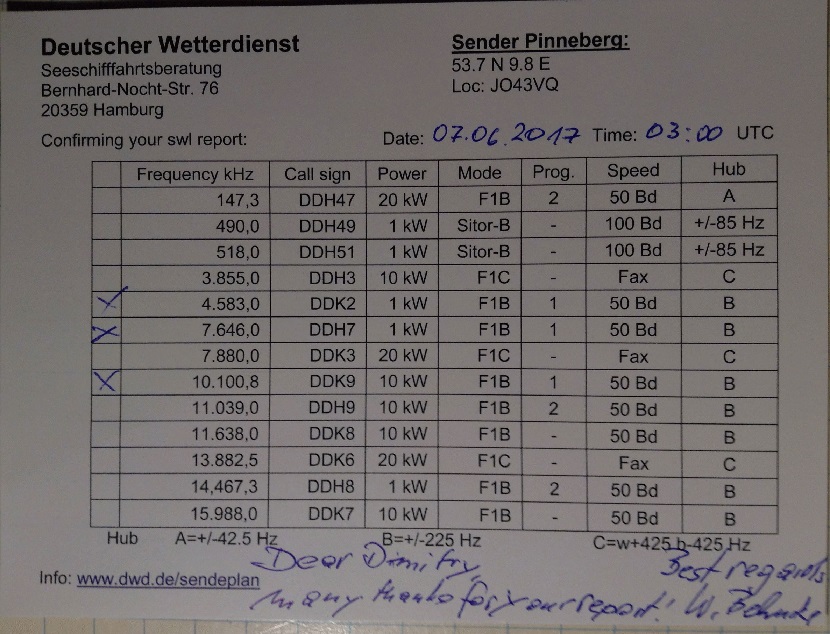 Deutscher Wetterdienst
Seeschifffahrtsberatung
Bernhard-Nocht-Str. 76
20359 Hamburg
Sender Pinneberg:
53.7 N 9.8 E
Loc: JO43VQ
Confirming your swl report: Date: 07.06.2017 Time: 03:00 UTC
Frequency kHz Call sign Power Mode Prog. Speed Hub
147,3 DDH47 20 kW F1B 2 50 Bd A
490,0 DDH49 1 kW Sitor-B - 100 Bd +/-85 Hz
518,0 DDH51 1 kW Sitor-B - 100 Bd +/-85 Hz
3.855,0 DDH3 10 kW F1C - Fax C
X 4.583,0 DDK2 1 kW F1B 1 50 Bd B
X 7.646,0 DDH7 1 kW F1B 1 50 Bd B
7.880,0 DDK3 20 kW F1C - Fax C
X 10.100,8 DDK9 10 kW F1B 1 50 Bd B
11.039,0 DDH9 10 kW F1B 2 50 Bd B
11.638,0 DDK8 10 kW F1B - 50 Bd B
13.882,5 DDK6 20 kW F1C - Fax C
14,467,3 DDH8 1 kW F1B 2 50 Bd B
15.988,0 DDK7 10 kW F1B - 50 Bd B
Hub A=+/-42.5 Hz B=+/-225 Hz C=w+425,b-425 Hz
Info: www.dwd.de/sendeplan
Dear Dimitry,
many thanks for your report!
Best regards
W.